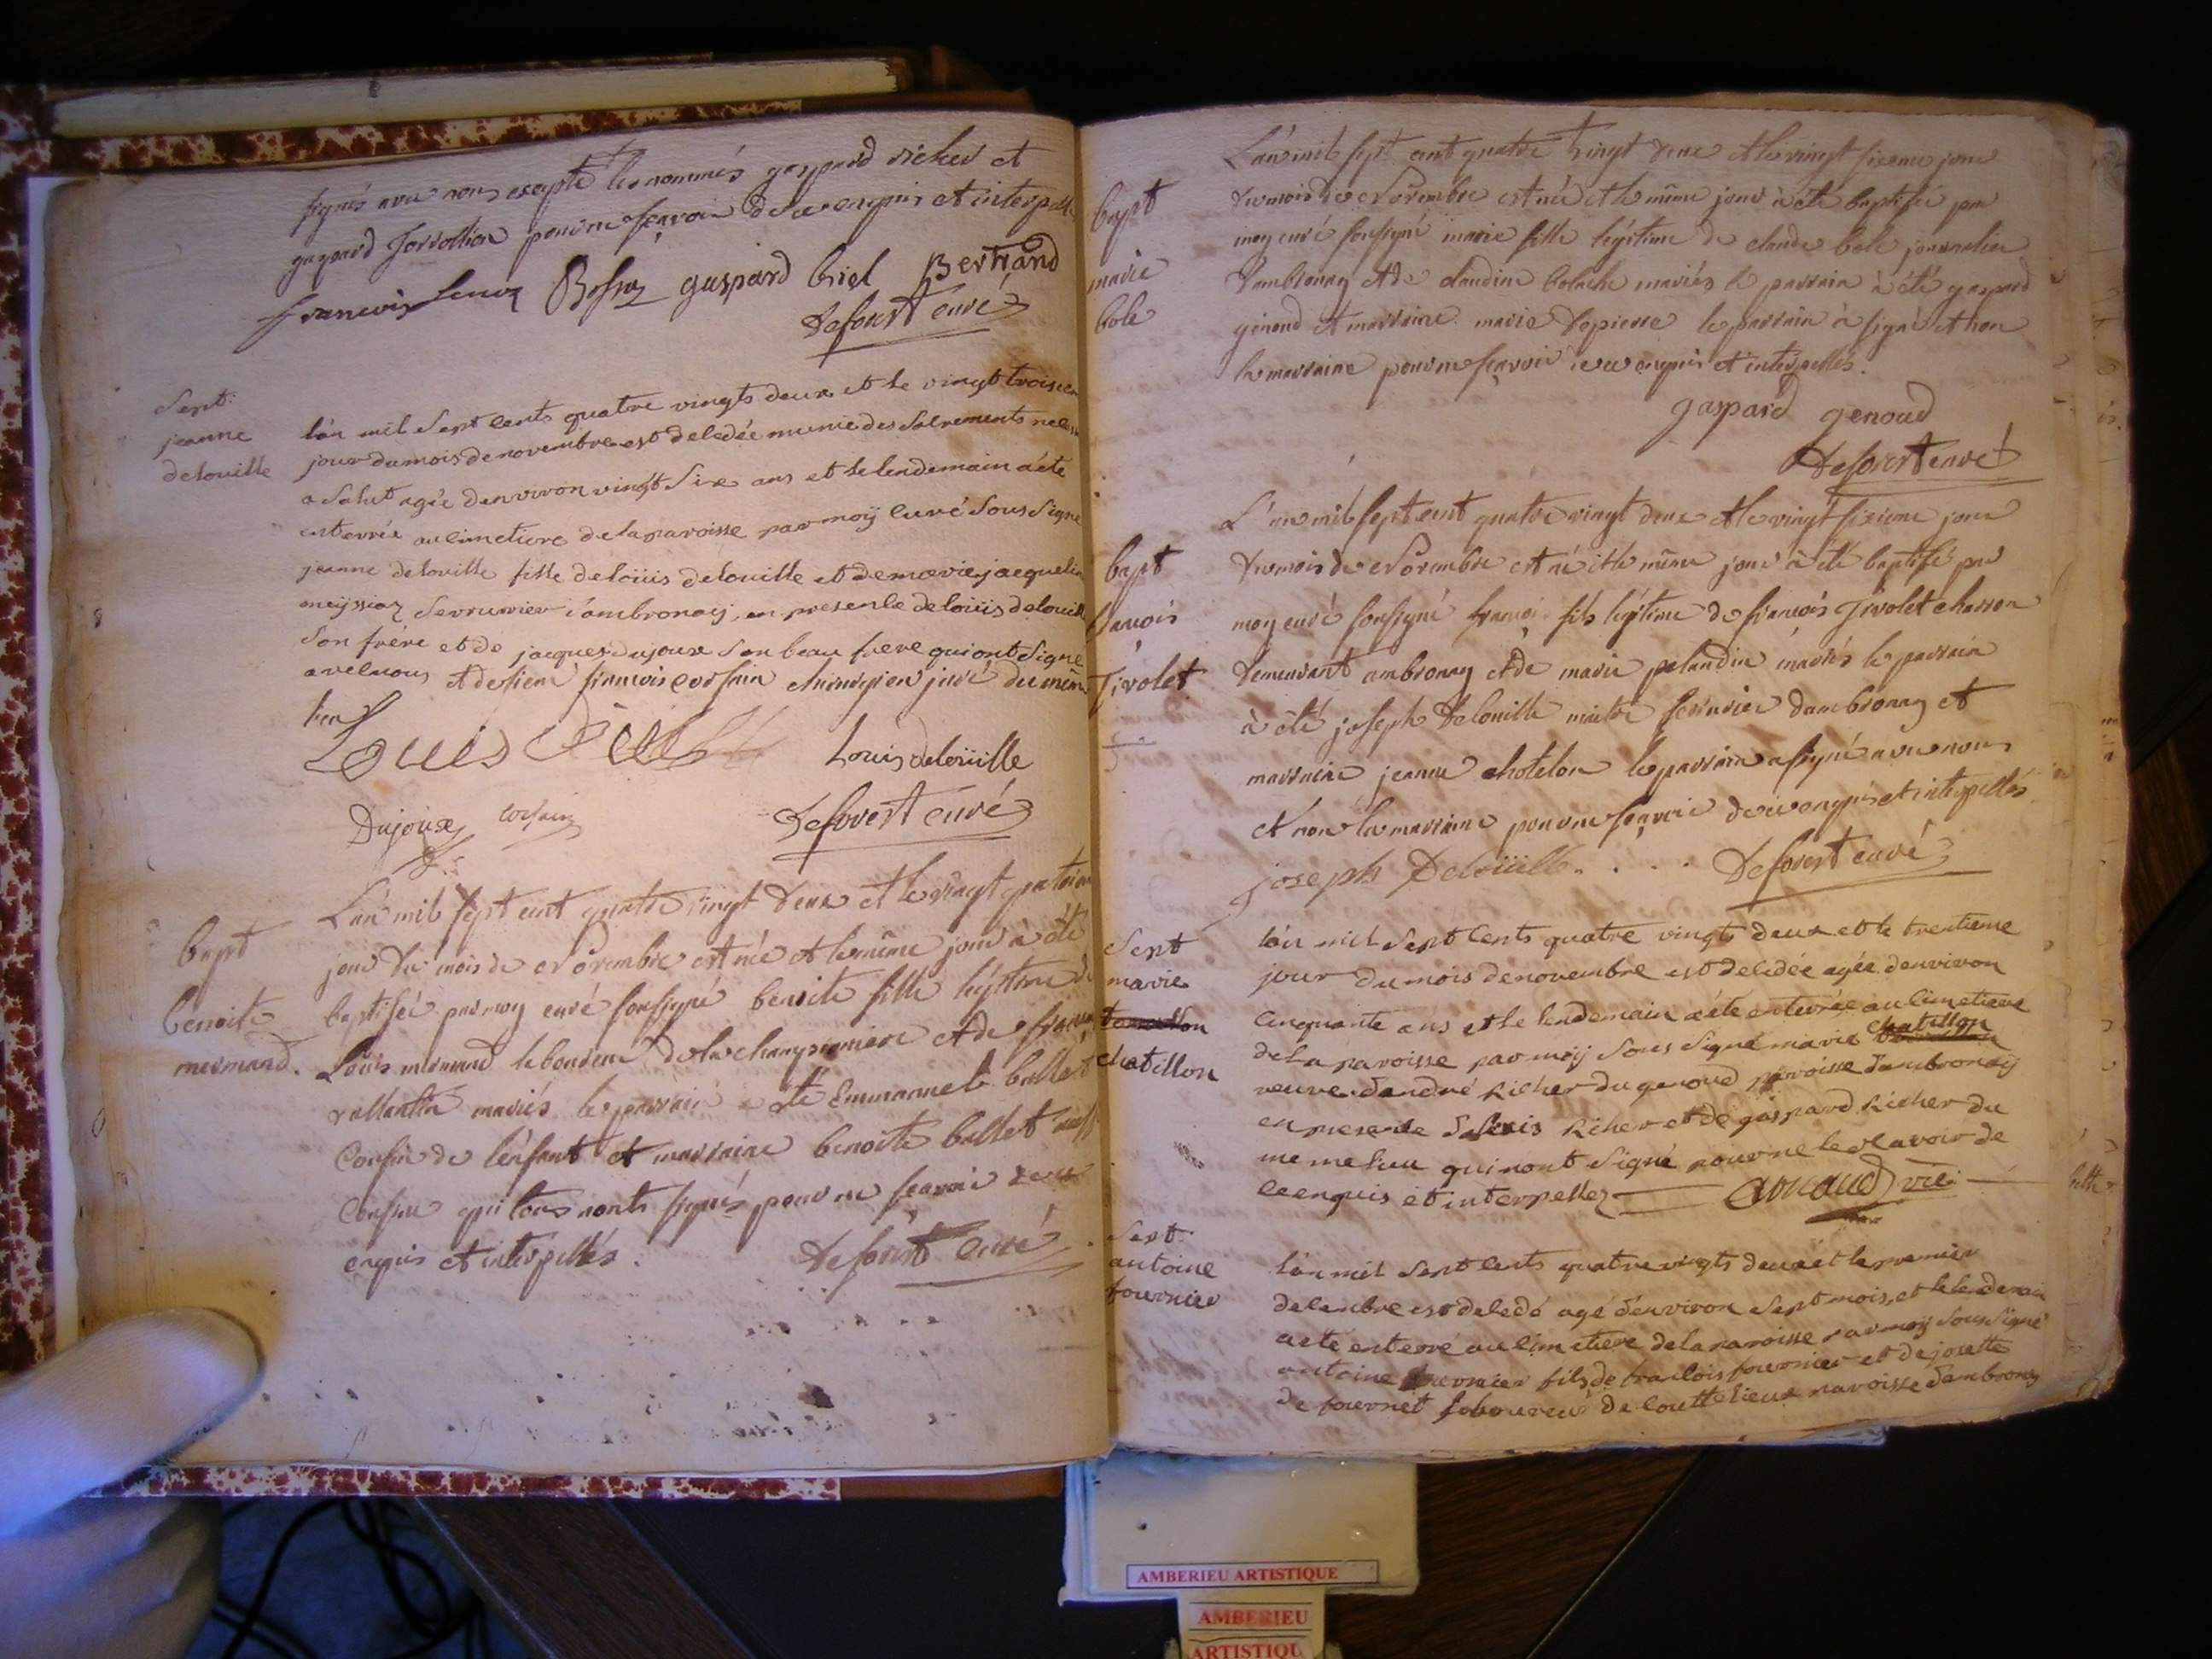 signés avec nous excepté les nommés gaspard richer et
gaspard Jorrollion pour ne sçavoir de ce enquis et interpellé
francois Bossy gaspard briel Bertrand
Deforest curé
Sept:
jeanne
delouille
lan mil Sept Cents quatre vingts deux et le vingt troisiem
jour du mois de novembre est decedée munie des Sacrements
a Salut agée denviron vingt Six ans et le lendemain a ete
enterrée au cimetiere de la paroisse par moÿ Curé Sous Signe
jeanne delouille fille de loüis delouille et de marie jacqueline
meÿssiaz Serrurier d'ambronaÿ, en presence de loüis delouille
Son frére et de jacques dujoux Son beau frere qui ont Signe
avec nous et de sieur francois corsain chirurgien juré du mem
lieu
Louis Louis deloüille
Dujoux corsain Deforest curé
bapt
benoite
mermand.
L'an mil sept cent quatre vingt deux et le vingt quatriem
jour du mois de Novembre est née et le même jour à été
baptisée par moy curé soussigné benoite fille légitime de
Louis mermand laboureur de la championniere et de
vallantin mariés le parrain a été Emmanuel ballet
Cousin de l'enfant et marraine benoite ballet aussi
Cousine qui tous nonts signés pour ne sçavoir de ce
enquis et interpellés. Deforest curé
bapt
marie
bole
L'an mil sept cent quatre vingt deux et le vingt sixieme jour
du mois de Novembre est née et le même jour à été baptisée par
moy curé soussigné marie fille légitime de claude bole journalier
d'ambronay et de claudine bolache mariés le parrain à été gaspard
genoud et marraine marie depierre le parrain à signé et non
la marraine pour ne sçavoir de ce enquis et interpellés.
gaspard genoud
Deforest curé
bapt
francois
Tivolet
L'an mil sept cent quatre vingt deux et le vingt sixieme jour
du mois de Novembre est né et le même jour à été baptisé par
moy curé soussigné francoi fils légitime de francois Tivolet charron
demeurant ambronay et de marie pelandin mariés le parrain
à été joseph Delouille maitre serrurier dambronay et
marraine jeanne chatelon le parrain a signé avec nous
et non la marraine pour ne sçavoir de ce enquis et interpellés
joseph Deloüille.... Deforest curé
Sept
marie
chatillon
lan mil Sept Cents quatre vingts deux et le trentieme
jour du mois de novembre est decedée agée denviron
Cinquante ans et le lendemain a éte enterrée au cimetiere
de la paroisse par moÿ Sous Signé marie chatillon
veuve d'andré Richer du genoud paroisse d'ambronaÿ
en presence Richer et de gaspard Richer du
meme lieu qui nont Signé pour ne le Scavoir de
ce enquis et interpellez Arnaud vic:
Sept:
antoine
fournier
lan mil Sept Cents quatre vingts deux et le premier
decembre est decedé agé d'environ Sept mois, et le lendemain
a eté enterré au cimetiere de la paroisse par moÿ Sous Signé
antoine fournier fils de francois fournier et de josette
de fournet laboureur de Couttelieux paroisse d'ambronay
AMBERIEU ARTISTIQUE
AMBERIEU
ARTISTIQU